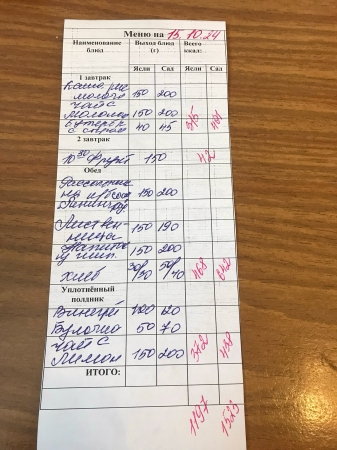 Меню на 15.10.24
Наименование блюд Выход блюд (г) Всего ккал:
Ясли Сад Ясли Сад
1 завтрак
Каша рис
молочн 150 200
чай с
молоком 150 200
Бутерб
с сыром 40 45
2 завтрак
10 30 фрукт 150 42
Обед
Рассольник
150 200
Ленингр
150 190
Напиток
из шип. 150 200
Хлеб 30/30 50/70 468
Уплотнённый полдник
Винегрет 100 120
Булочка 50 70
чай с 372
лимон 150 200
ИТОГО:
1197 1523